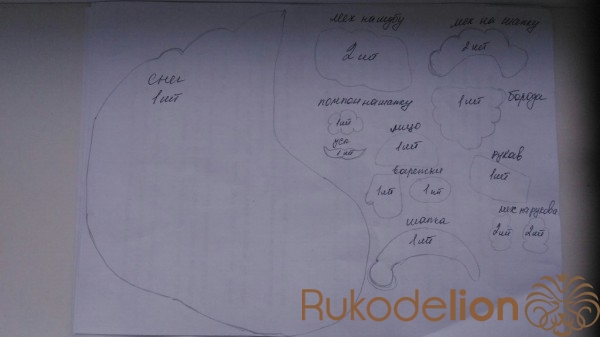 снег
1 шт
мех на шубу
2 шт
мех на шапку
2 шт
помпон на шапку
1 шт
усы
1 шт
лицо
1 шт
борода
1 шт
варежки
1 шт
1 шт
рукав
1 шт
мех на рукова
2 шт
2 шт
шапка
1 шт
Rukodelion